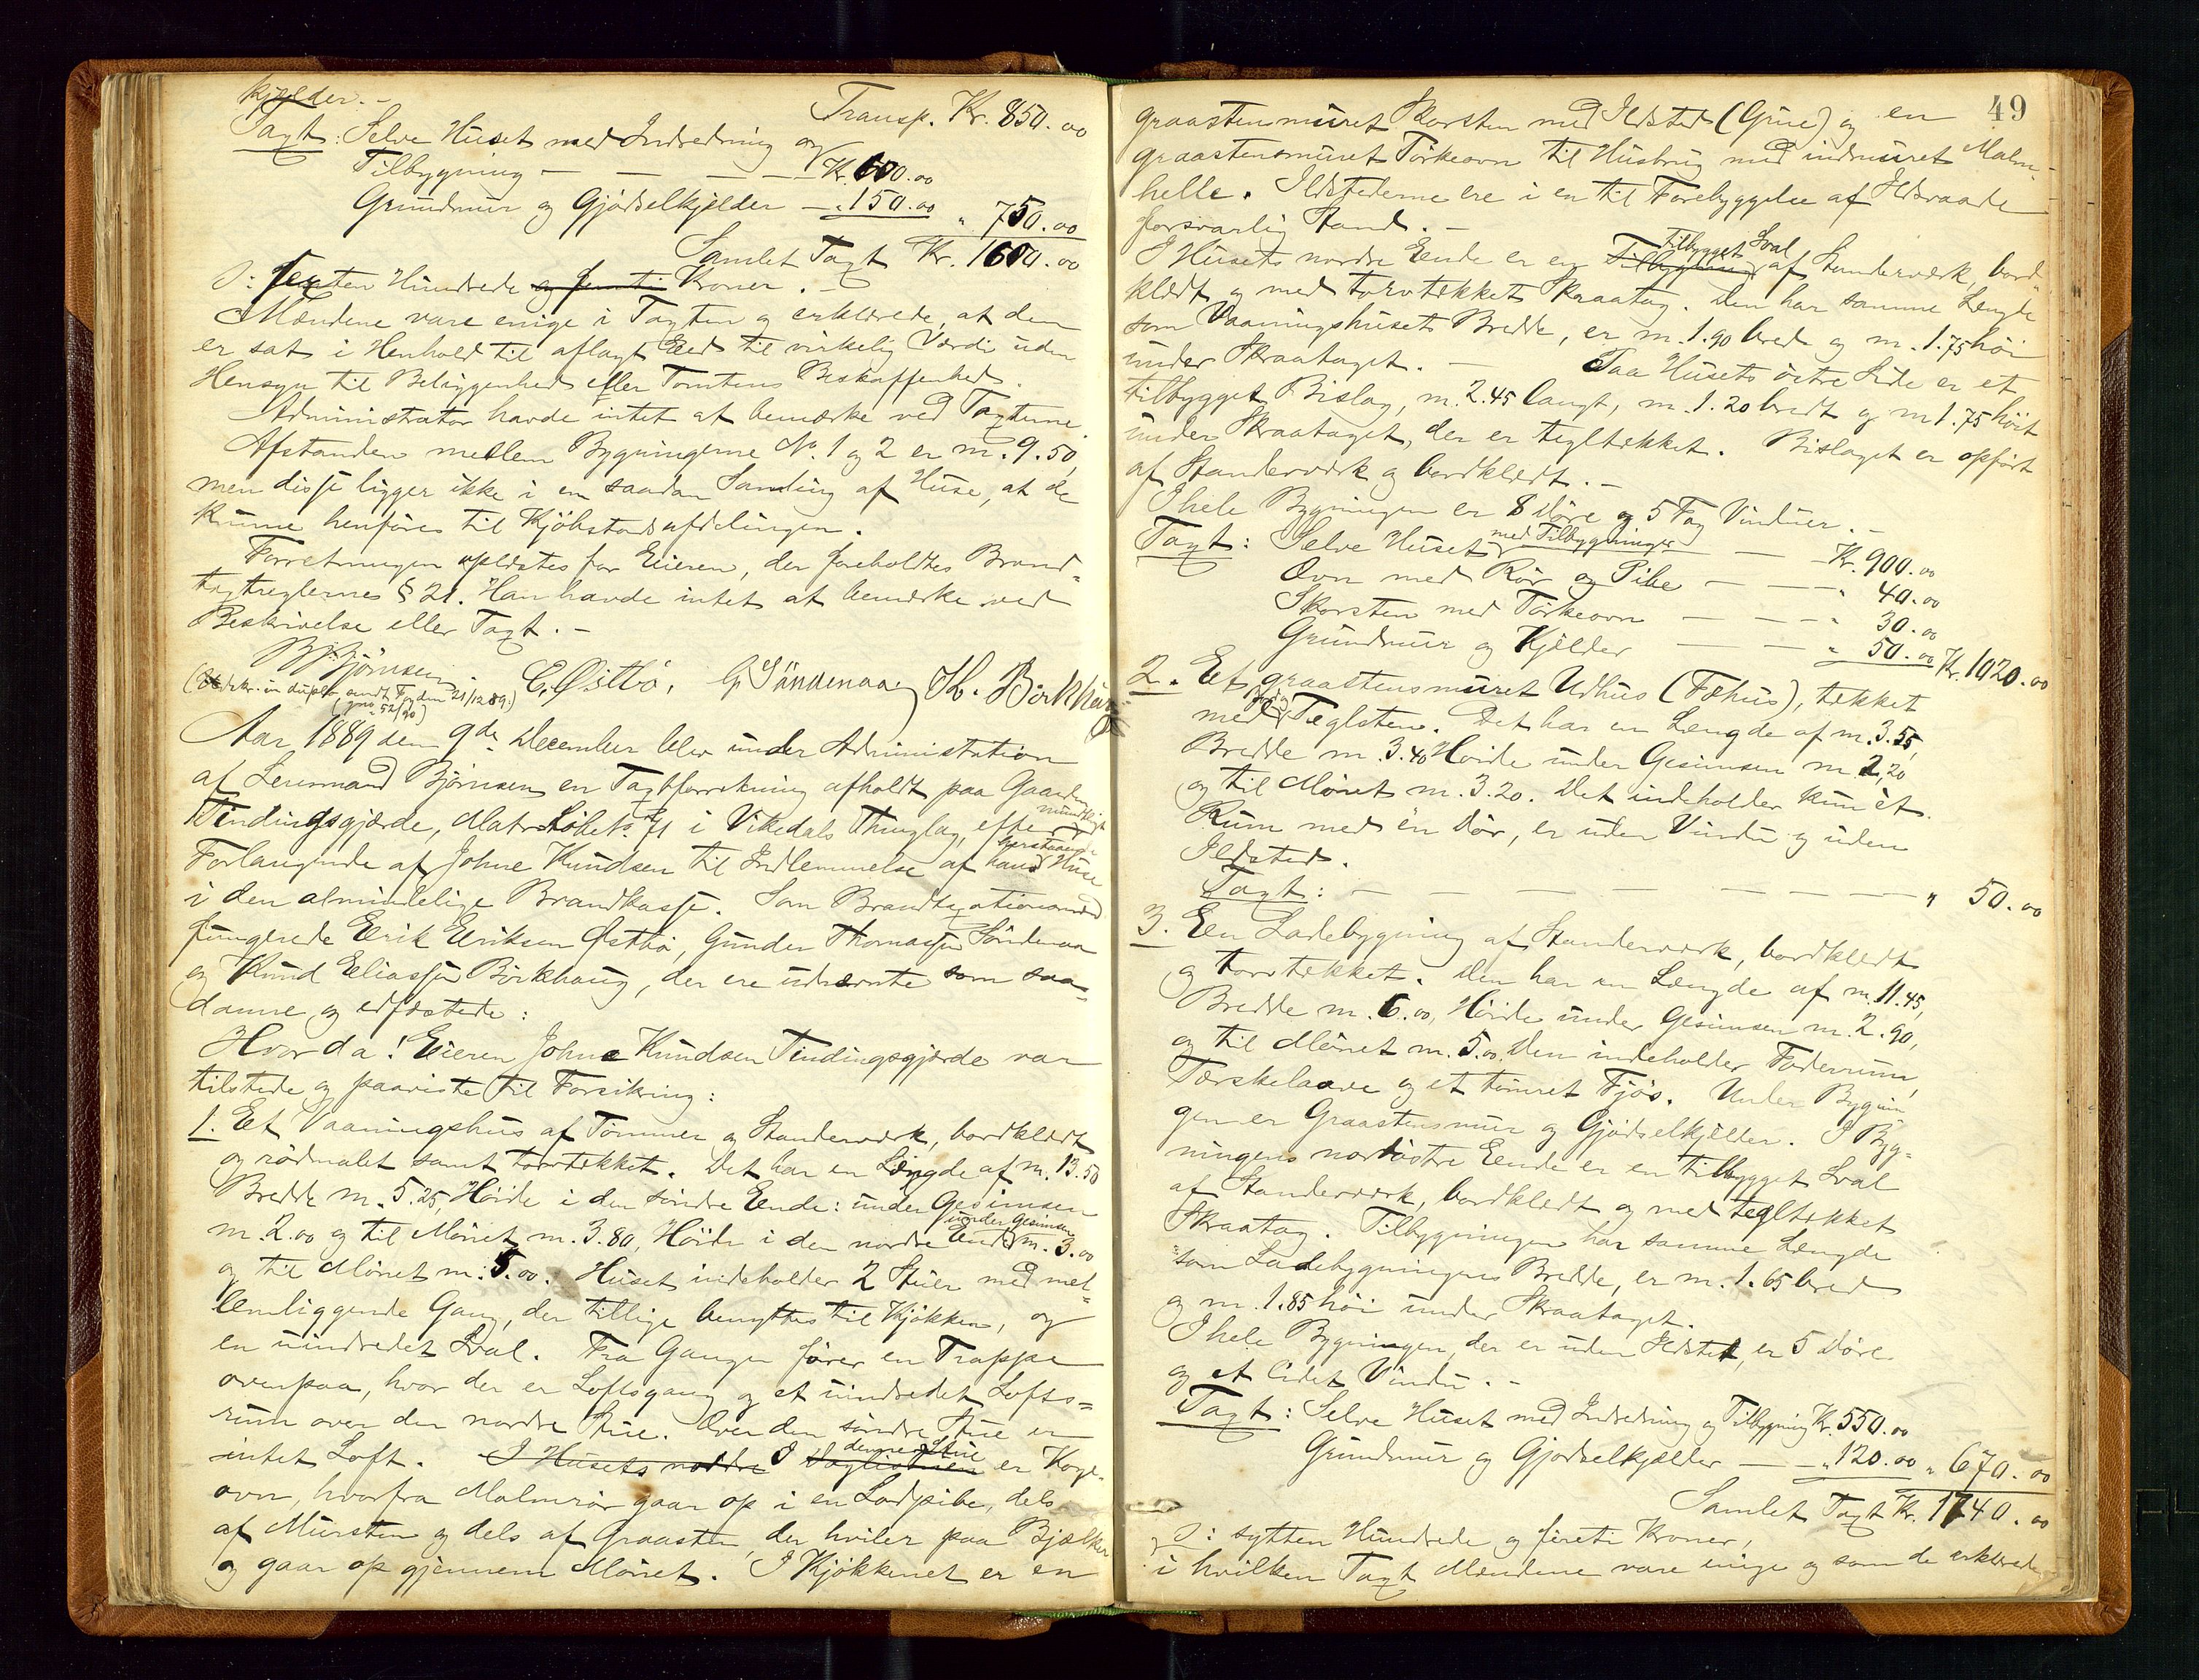 kjælder. -
Transp. Kr. 850.00
Taxt: Selve Huset med Indredning og
Tilbygning — — — — Kr. 600.00
Grundmur og Gjödselkjelder — " 150.00 " 750.00
Samlet Taxt Kr. 1600.00
ɔ: sexten Hundrede og femti Kroner. -
Mændene vare enige i Taxten og erklærede, at den
er sat i Henhold til aflagt Eed til virkelig Værdi uden
Hensyn til Beliggenhed eller Tomtens Beskaffenhed.
Administrator havde intet at bemærke ved Taxterne.
Afstanden mellem Bygningerne No. 1 og 2 er m. 9.50,
men disse ligger ikke i en saadan Samling af Huse, at de
kunne henföres til Kjöbstadsafdelingen.
Forretningen oplæstes for Eieren, der foreholdtes Brand-
taxtreglernes § 21. Han havde intet at bemærke ved
Beskrivelse eller Taxt. -
B. Björnsen. E. Østbö, G Söndenaa, K. Börkhaug
(Udskr. in duplo sendt Fogden 21/12 89.)
52/90)
Aar 1889 den 9de December blev under Administration
af Lensmand Björnsen en Taxtforretning afholdt paa Gaarden
Tindingsgjærde, Matr Löbe No. 71 i Vikedals Thinglag, efter mundtligt
Forlangende af Johne Knudsen til Indlemmelse af hans Huse
i den almindelige Brandkasse. Som Brandtaxationsmænd
fungerede Eerik Eriksen Østbö, Gunder Thomassen Söndenaa
og Knud Eliassen Börkhaug, der ere udnævnte som saa-
danne og edfæstede:
Hvorda! Eieren Johne Knudsen Tindingsgjærde var
tilstede og paaviste til Forsikring:
1. Et Vaaningshus af Tömmer og Standerværk, bordklædt
og rödmalet samt torvtækket. Det har en Længde af m. 13.50
Bredde m. 5.25, Höide i den söndre Eende: under Gesimsen
m. 2.00 og til Mönet m. 3.80, Höide i den nordre Ende under Gesimsen m. 3.00
og til Mönet m. 5.00. Huset indeholder 2 Stuer med mel-
lemliggende Gang, der tillige benyttes til Kjökken, og
en uindredet Sval. Fra Gangen förer en Trappe
ovenpaa, hvor der er Loftsgang og et uindredet Lofts=
rum over den nordre Stue. Over den söndre Stue er
intet Loft. I Husets nordre I Daglistuen denne Stue er Koge-
ovn, hvorfra Malmrör gaar op i en Lodpibe, dels
af Mursten og dels af Graasten, der hviler paa Bjælker
og gaar op gjennem Mönet. I Kjökkenet er en
49
graastensmuret Skorsten med Ildsted (Grue) og en
graastensmuret Törkeovn til Husbrug med indmuret Malm-
helle. Ildstederne ere i en til Forebyggelse af Ildsvaade
forsvarlig Stand. -
I Husets nordre Eende er en Tilbygning tilbygget Sval af Standerværk, bord-
klædt og med torvtækket Skraatag. Den har samme Længde
som Vaaningshusets Bredde, er m. 1.90 bred og m. 1.75 höi
under Skraataget. - Paa Husets östre Side er et
tilbygget Bislag, m. 2.45 langt, m. 1.20 bredt og m 1.75 höit
under Skraataget, der er tegltækket. Bislaget er opfört
af Standerværk og bordklædt. -
I hele Bygningen er 8 Döre og 5 Fag Vinduer. -
Taxt: Selve Huset med Tilbygninger — Kr. 900.00
Ovn med Rör og Pibe — — " 40.00
Skorsten med Törkeovn — — " 30.00
Grundmur og Kjelder — — " 50.00 Kr. 1020.00
2. Et graastensmuret Udhus (Fæhus), tækket
med Teglsten. Det har en Længde af m. 3.55,
Bredde m. 3.40 Höide under Gesimsen m 2,20
og til Mönet m. 3.20. Det indeholder kun èt
Rum med èn Dör, er uden Vindu og uden
Ildsted.
Taxt: — — — — — — " 50.00
3. Een Ladebygning af Standerværk, bordklædt
og torvtækket. Den har en Længde af m. 11.45,
Bredde m. 6.00, Höide under Gesimsen m. 2.90,
og til Mönet m. 5.00. Den indeholder Foderrum,
Tærskelaave og et tömret Fjös. Under Bygnin
gen er Graastensmur og Gjödselkjelder. I Byg-
ningens nordöstre Eende er en tilbygget Sval
af Standerværk, bordklædt og med tegltækket
Skraatag. Tilbygningen har samme Længde
som Ladebygningens Bredde, er m. 1.65 bred
og m. 1.85 höi under Skraataget.
I hele Bygningen, der er uden Ildsted, er 5 Döre
og et lidet Vindu. -
Taxt: Selve Huset med Indredning og Tilbygning Kr. 550.00
Grundmur og Gjödselkjælder — — " 120.00 " 670.00
Samlet Taxt Kr. 1740.00
ɔ: sytten Hundrede og företi Kroner,
i hvilken Taxt Mændene vare enige og som de erklærede